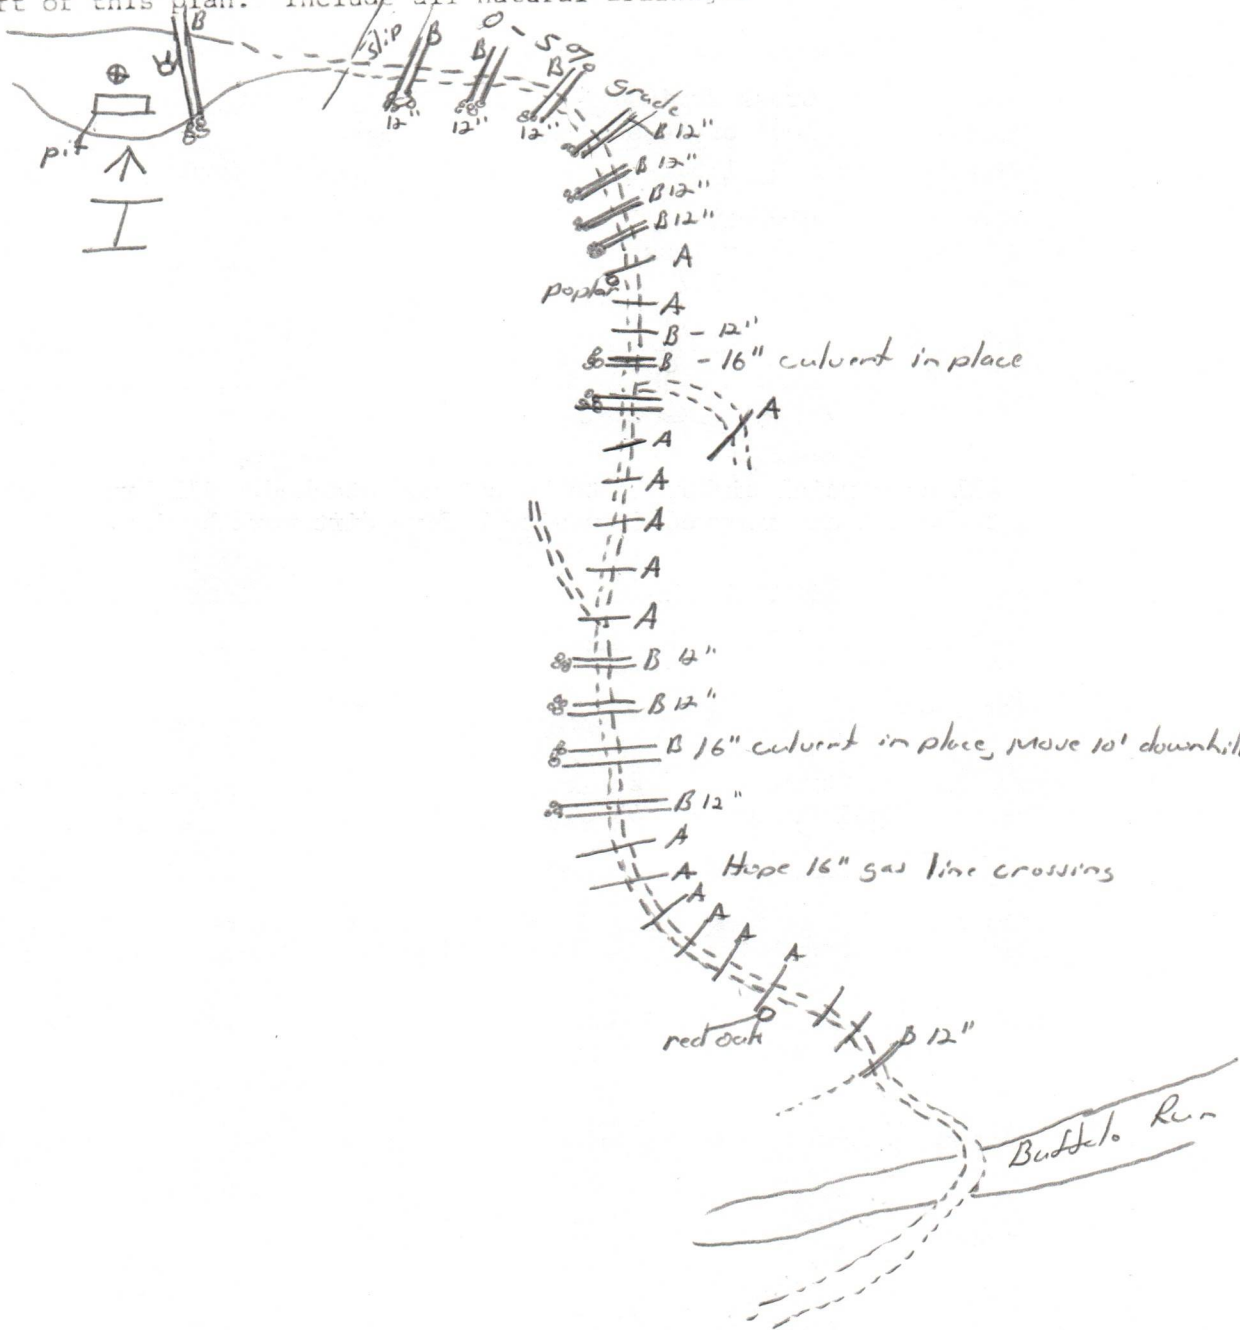 rt of this plan. Include all natural
B
Slip
B
B
B
12"
12"
12"
Grade
B 12"
pit
I
B 12"
B 12"
B 12"
A
poplar
A
B - 12"
B - 16" culvent in place
A
A
A
A
A
A
B 12"
B 12"
B 16" culvent in place, Move 10' downhill
B 12"
A
A Hope 16" gas line crossing
A
A
A
A
red oak
B 12"
Buffalo Run